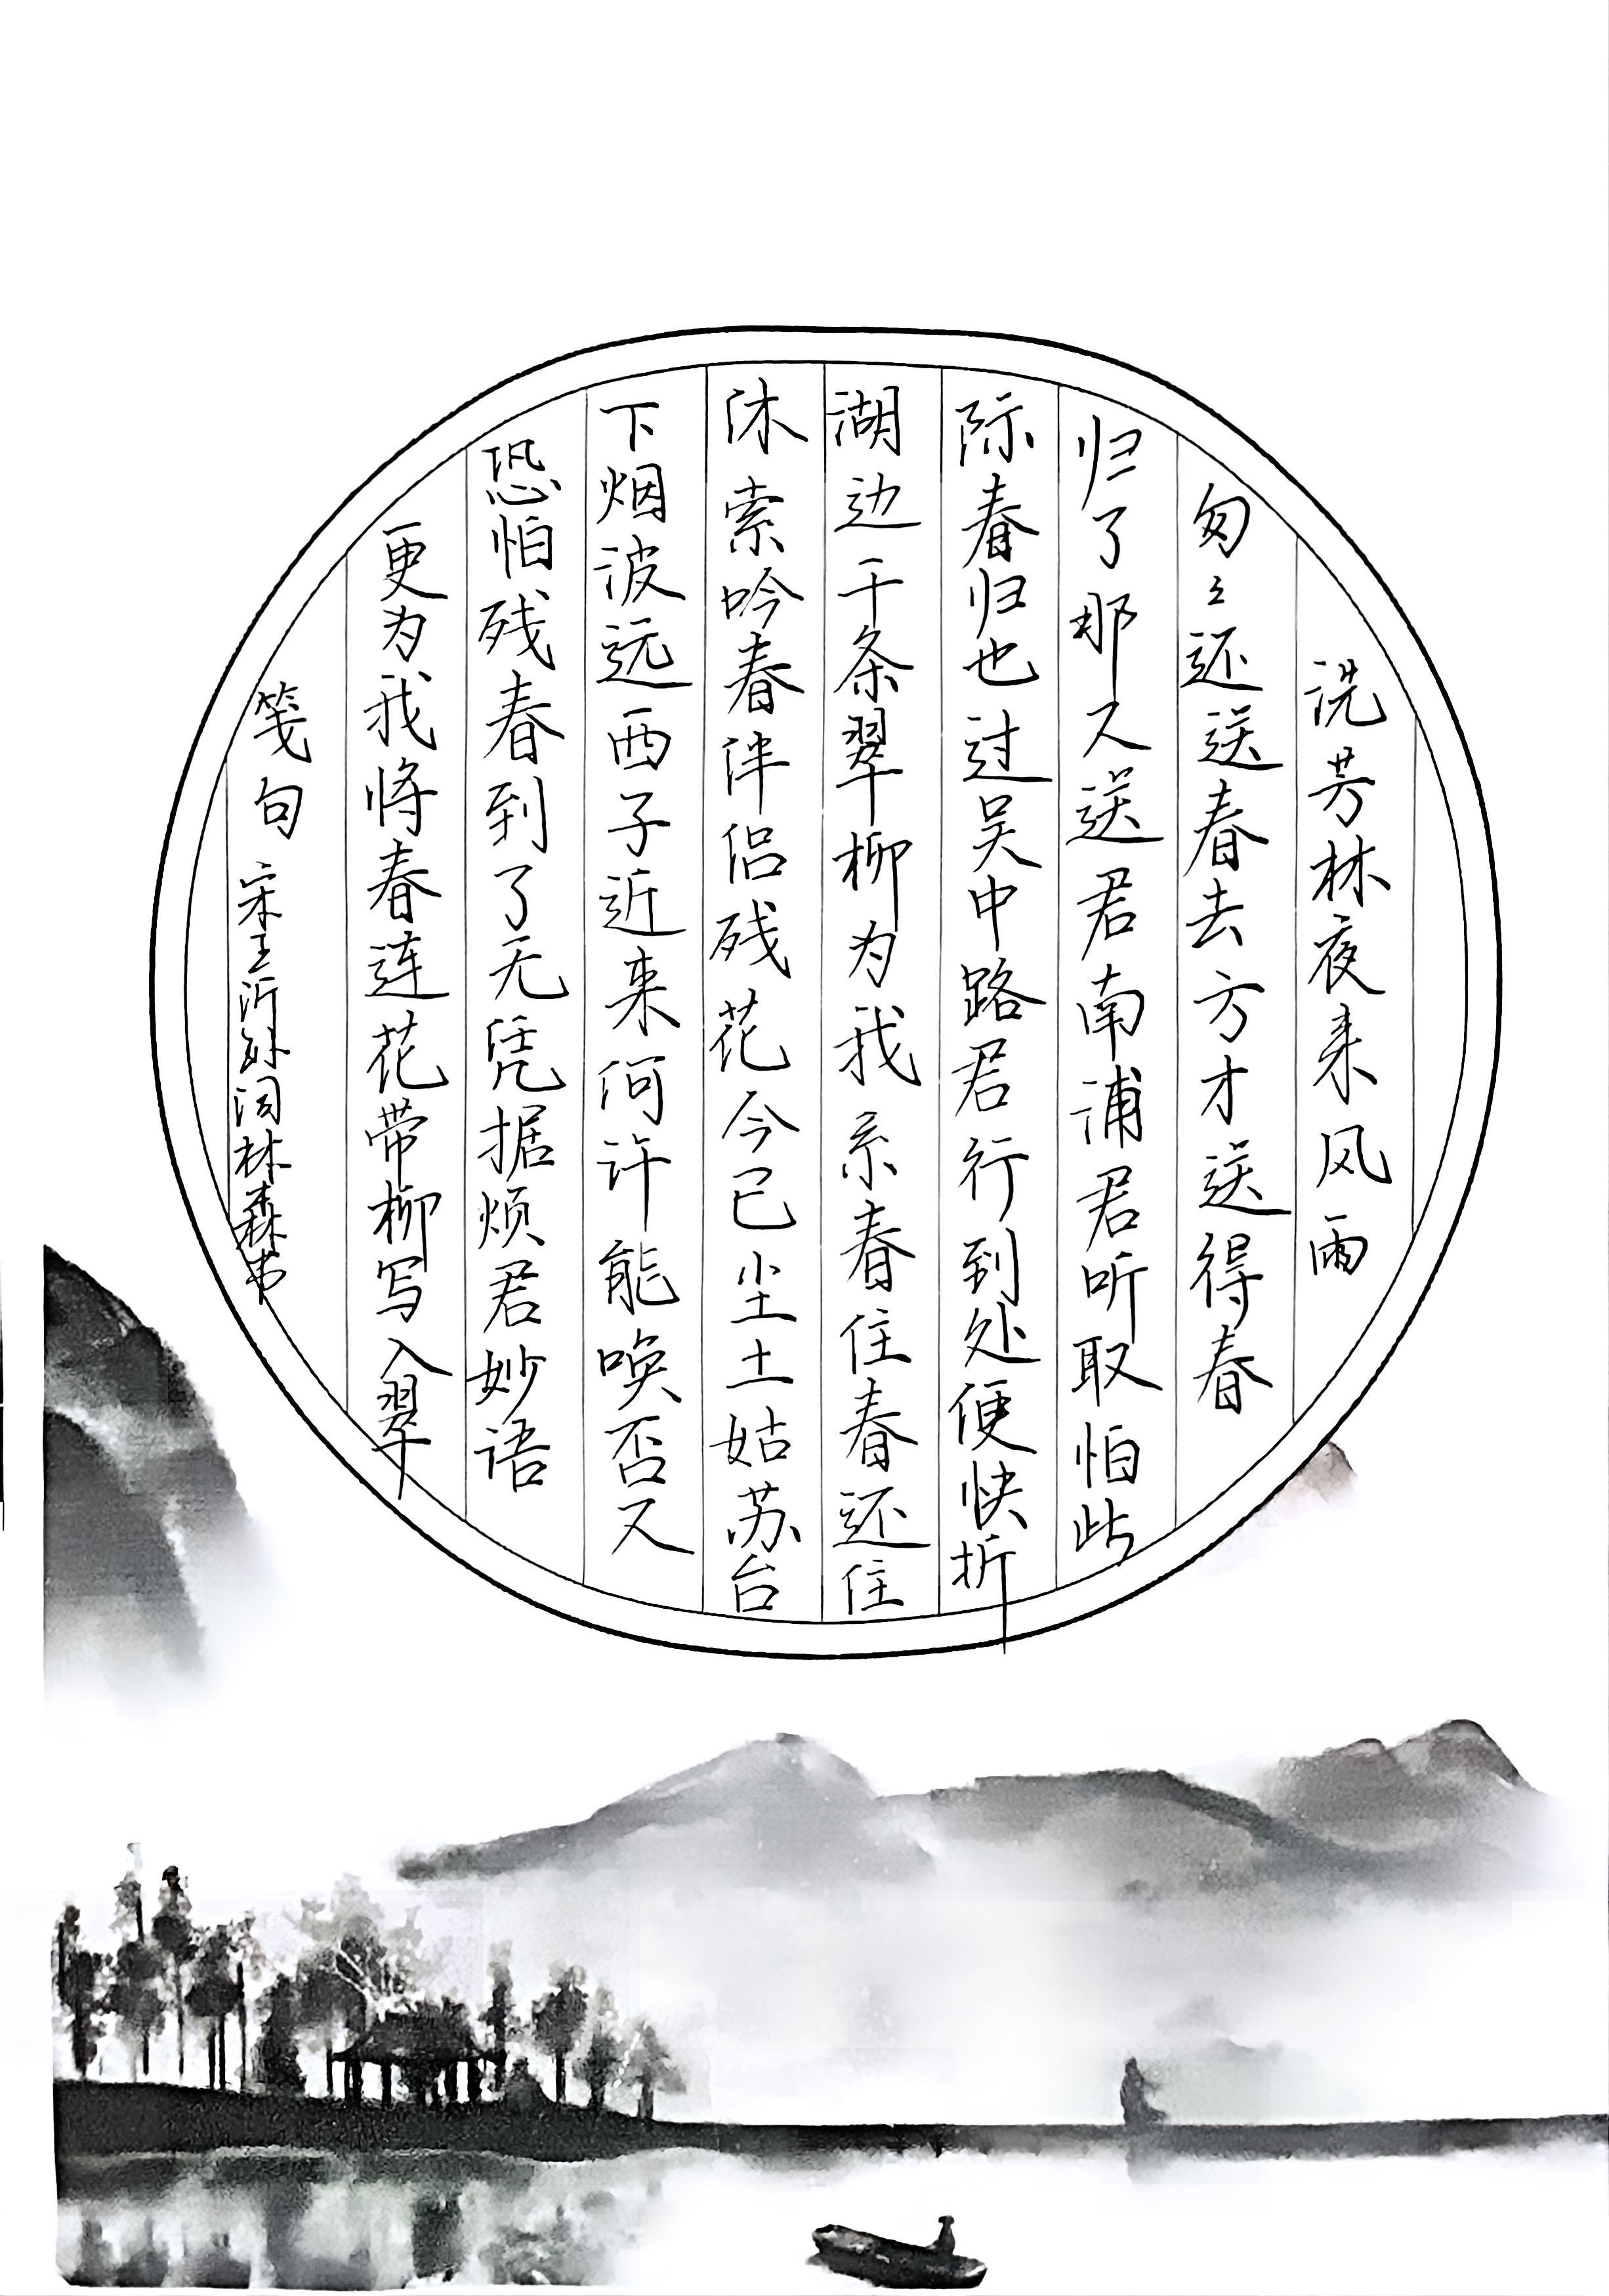 洗芳林夜来风雨
匆〻还送春去方才送得春
归了那又送君南浦君听取怕此
际春归也过吴中路君行到处便快折
湖边千条翠柳为我系春住春还住
休索吟春伴侣残花今已尘土姑苏台
下烟波远西子近来何许能唤否又
恐怕残春到了无凭据烦君妙语
更为我将春连花带柳写入翠
笺句 宋王沂孙词林森书